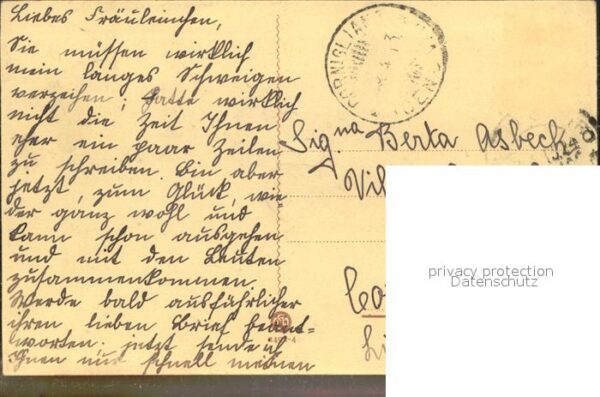 Liebes Fräuleinchen,
Sie müssen wirklich
mein langes Schweigen
verzeihen, hatte wirklich
nicht die Zeit Ihnen
eher ein paar Zeilen
zu schreiben. Bin aber
jetzt, zum Glück, wie-
der ganz wohl und
kann schon ausgehen
und mit den Leuten
zusammenkommen.
Werde bald ausführlicher
ihren lieben Brief beant-
worten. jetzt sende ich
Ihnen nur schnell meinen
CORNIGLIANO
Sig.na Berta Asbeck
Vil
Co
privacy protection
Datenschutz